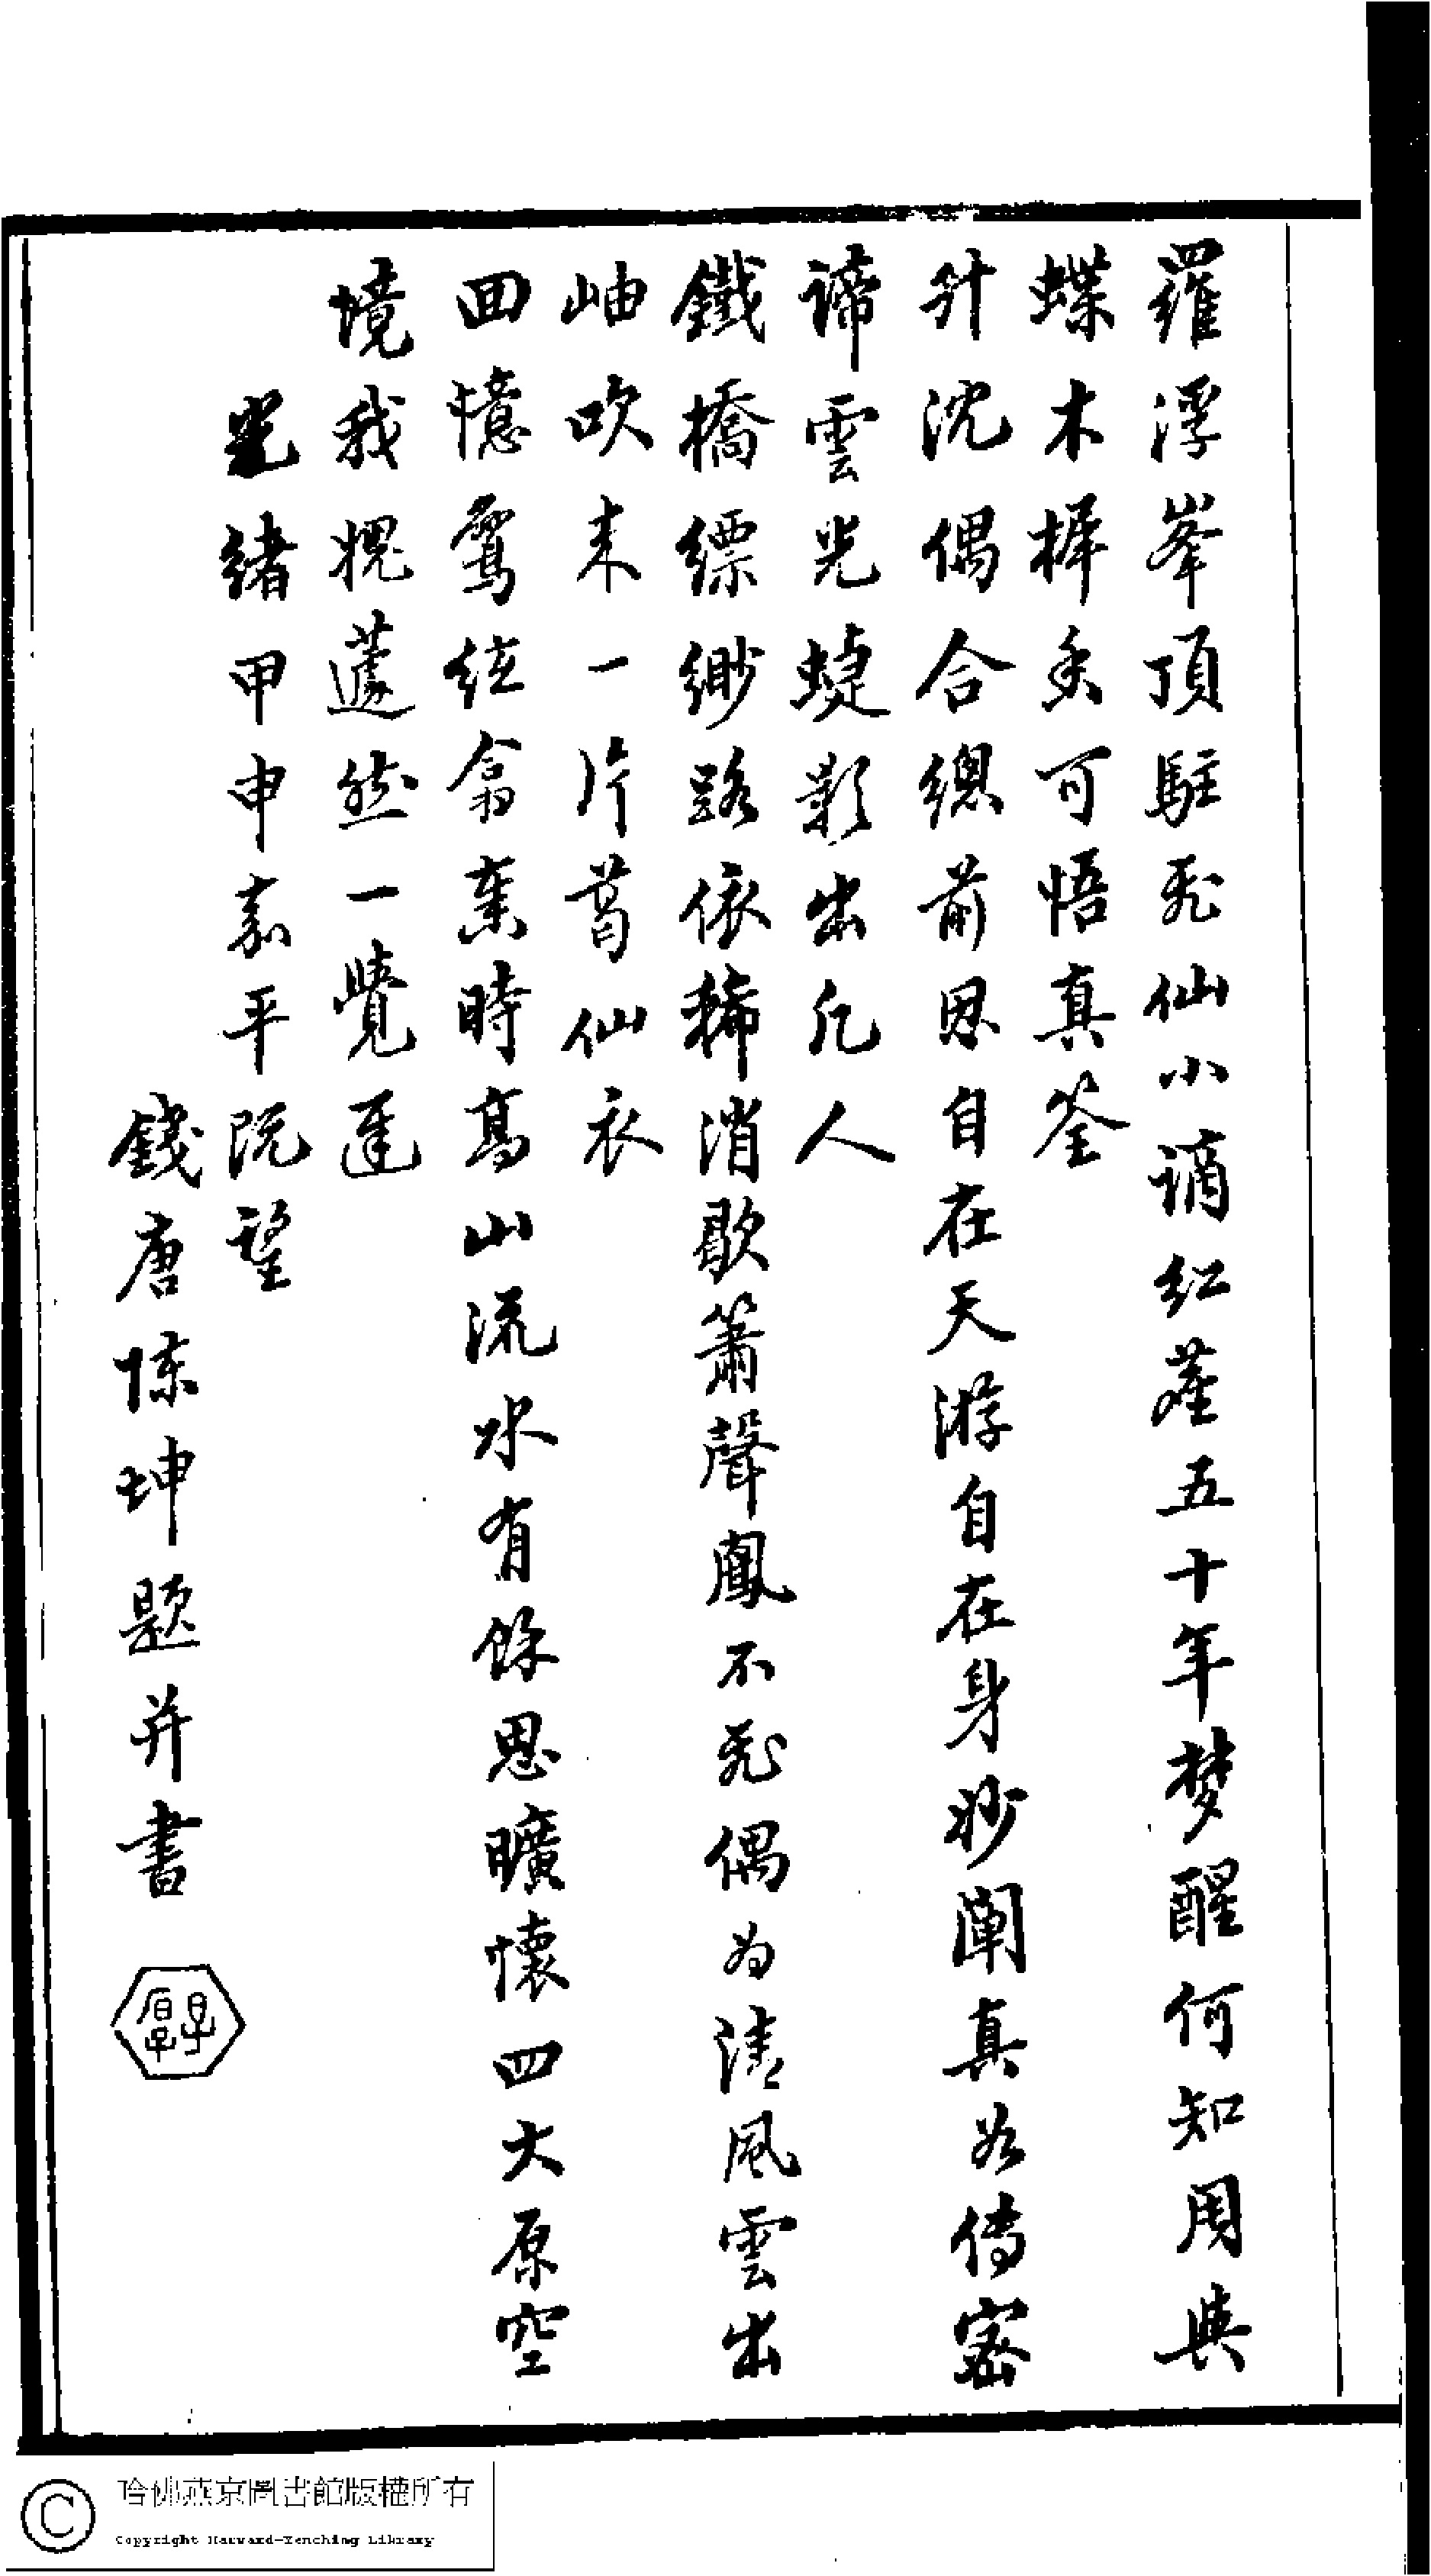 羅浮峯頂駐飛仙小謫紅塵五十年夢醒何知周與
蝶木樨香可悟真筌
升沈偶合總前因自在天游自在身妙闡真如傳密
諦雲光蜨影出凡人
鐵橋縹緲路依稀消歇簫聲鳳不飛偶為清風雲出
岫吹來一片葛仙衣
回憶鴛絃翕奏時高山流水有餘思曠懷四大原空
境我愧蘧然一覺遲
光緒甲申嘉平既望
錢唐陳坤題并書
哈佛燕京圖書館版權所有
Copyright Harvard-Yenching Library